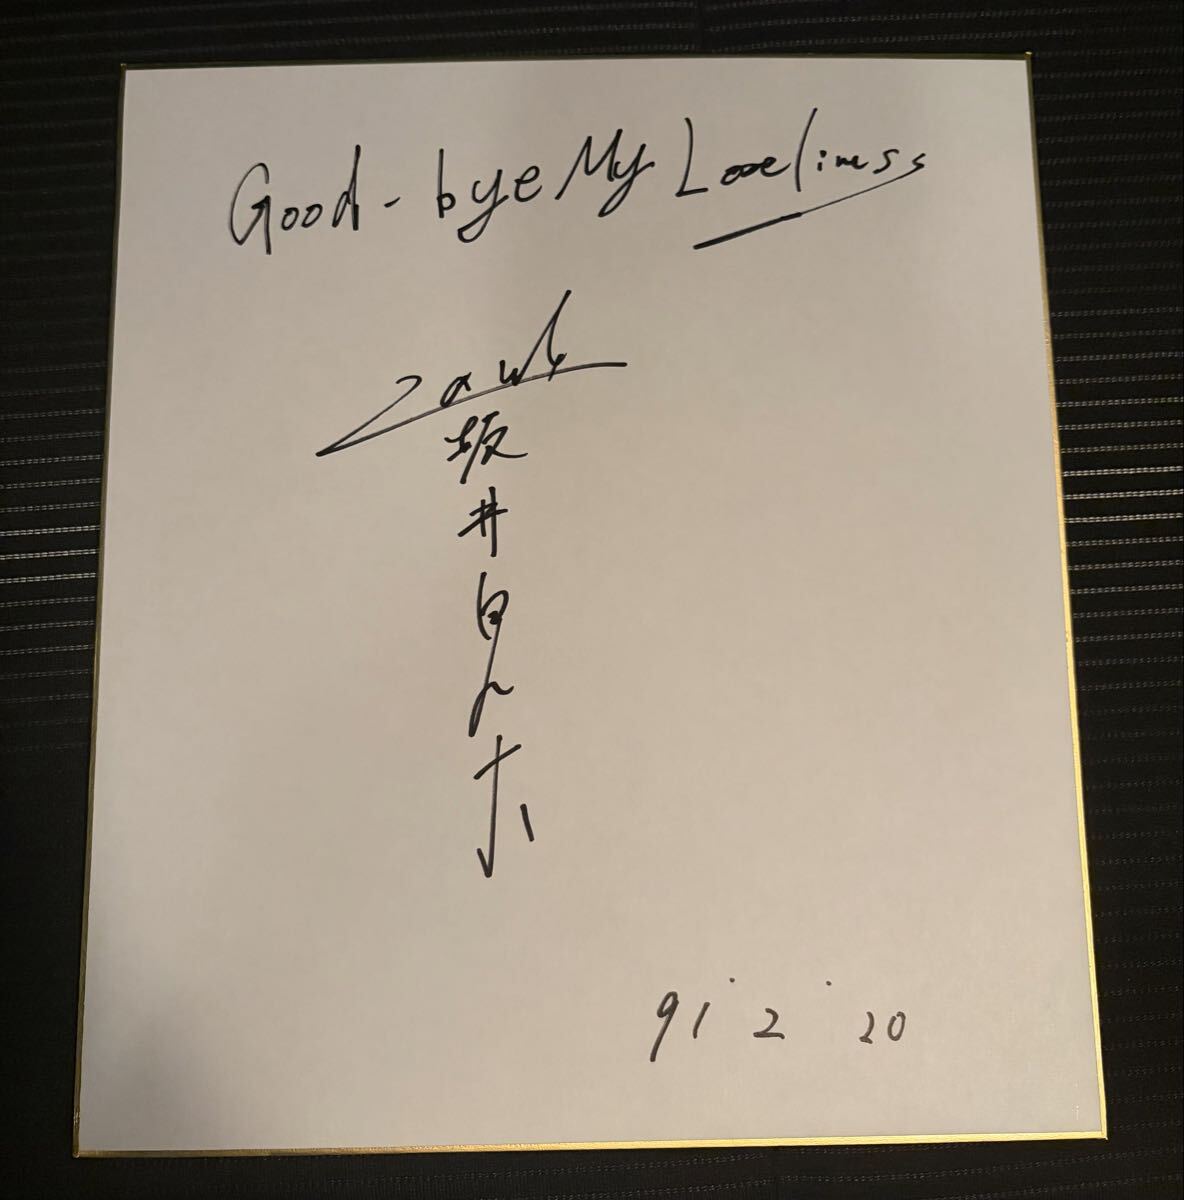 Good-bye My Loneliness
Zard
坂井泉水
91 2 20